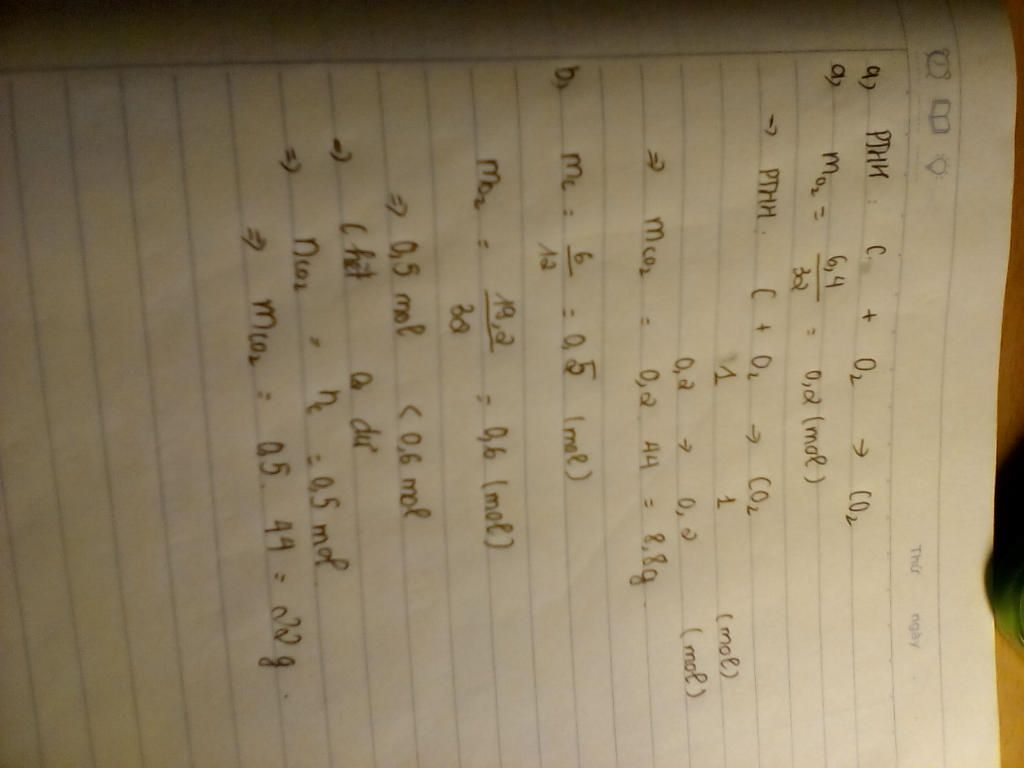 Thứ ngày
a, PTHH: C + O2 → CO2
a, mO2 = 6,4/32 = 0,2 (mol)
→ PTHH: C + O2 → CO2
1 1 (mol)
0,2 → 0,2 (mol)
⇒ mCO2 = 0,2 . 44 = 8,8g
b, mC = 6/12 = 0,5 (mol)
mO2 = 19,2/32 = 0,6 (mol)
⇒ 0,5 mol < 0,6 mol
→ C hết O2 dư
⇒ nCO2 = nC = 0,5 mol
⇒ mCO2 = 0,5 . 44 = 22 g.